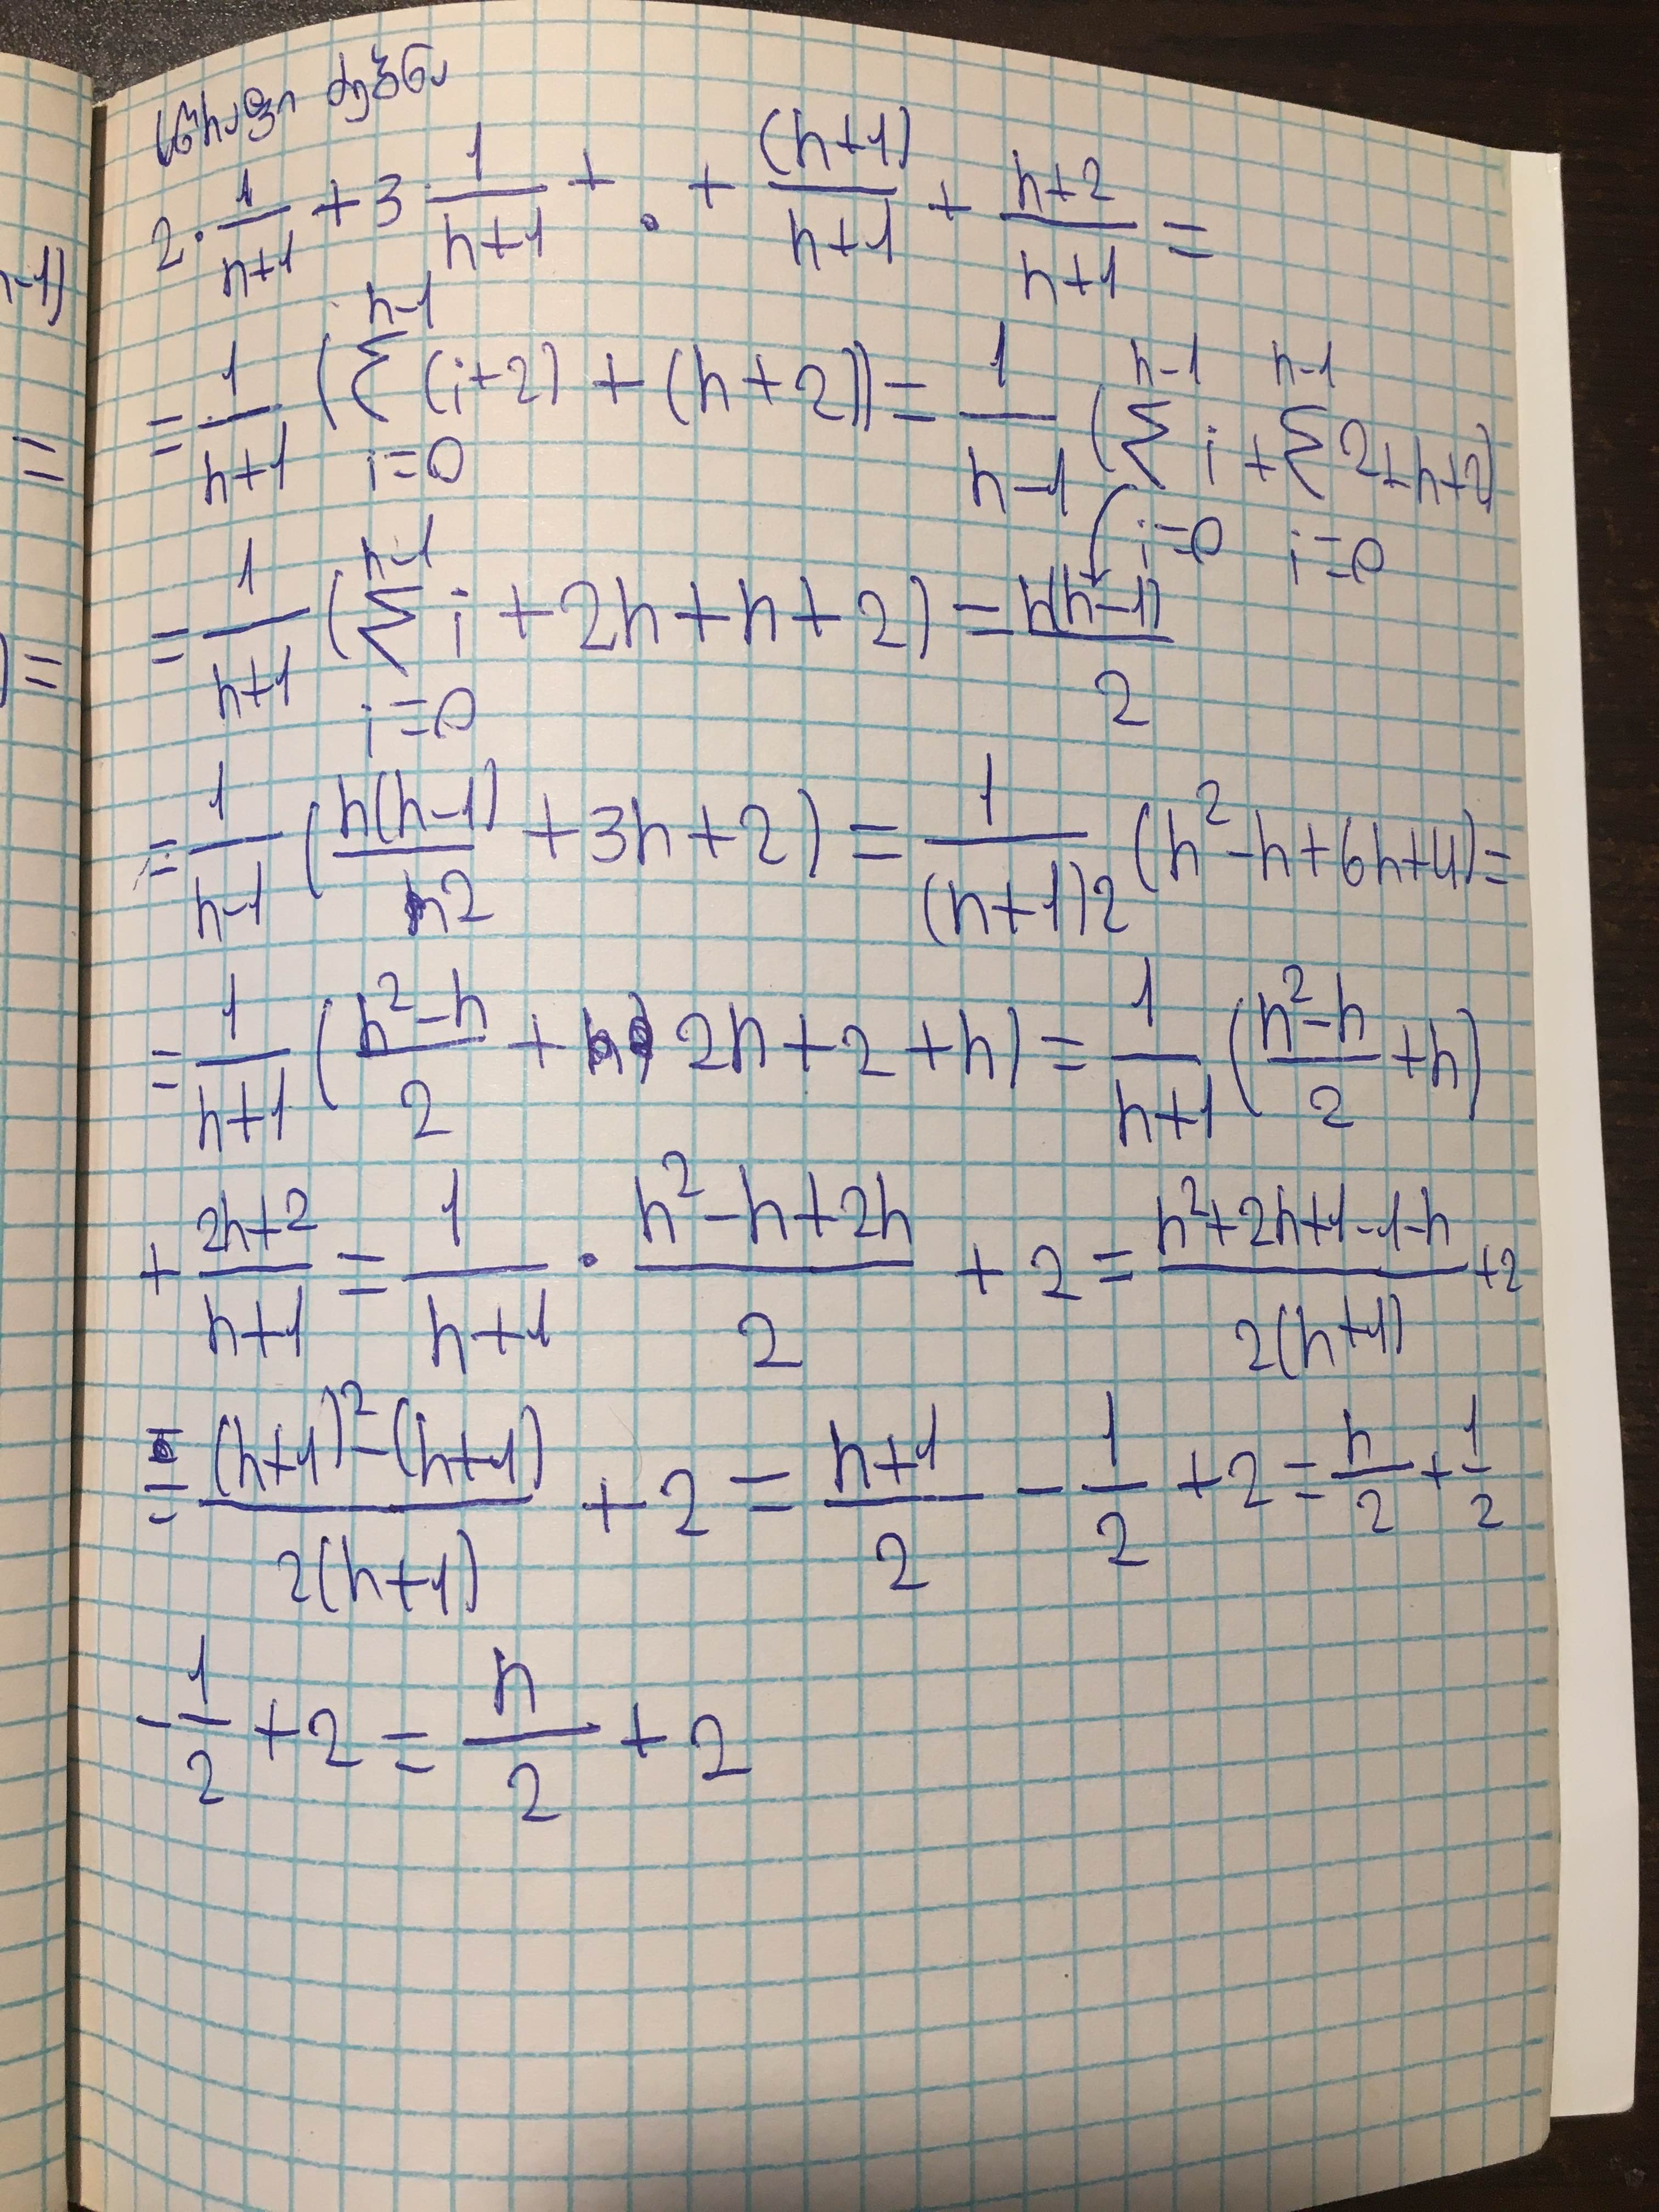 წრფივი ძებნა
2 · 1/(n+1) + 3 1/(n+1) + . + (n+1)/(n+1) + (n+2)/(n+1) =
= 1/(n+1) (∑_{i=0}^{n-1} (i+2) + (n+2)) = 1/(n-1) (∑_{i=0}^{n-1} i + ∑_{i=0}^{n-1} 2+n+2)
= 1/(n+1) (∑_{i=0}^{n-1} i + 2n + n + 2) = n(n-1)/2
= 1/(n-1) (n(n-1)/2 + 3n + 2) = 1/((n+1)2) (n²-n+6n+4) =
= 1/(n+1) ((n²-n)/2 + 2n + 2 + n) = 1/(n+1) ((n²-n)/2 + n)
+ (2n+2)/(n+1) = 1/(n+1) · (n²-n+2n)/2 + 2 = (n²+2n+1-1-n)/(2(n+1)) + 2
= ((n+1)²-(n+1))/(2(n+1)) + 2 = (n+1)/2 - 1/2 + 2 = n/2 + 1/2
- 1/2 + 2 = n/2 + 2
n-1)
=
) =